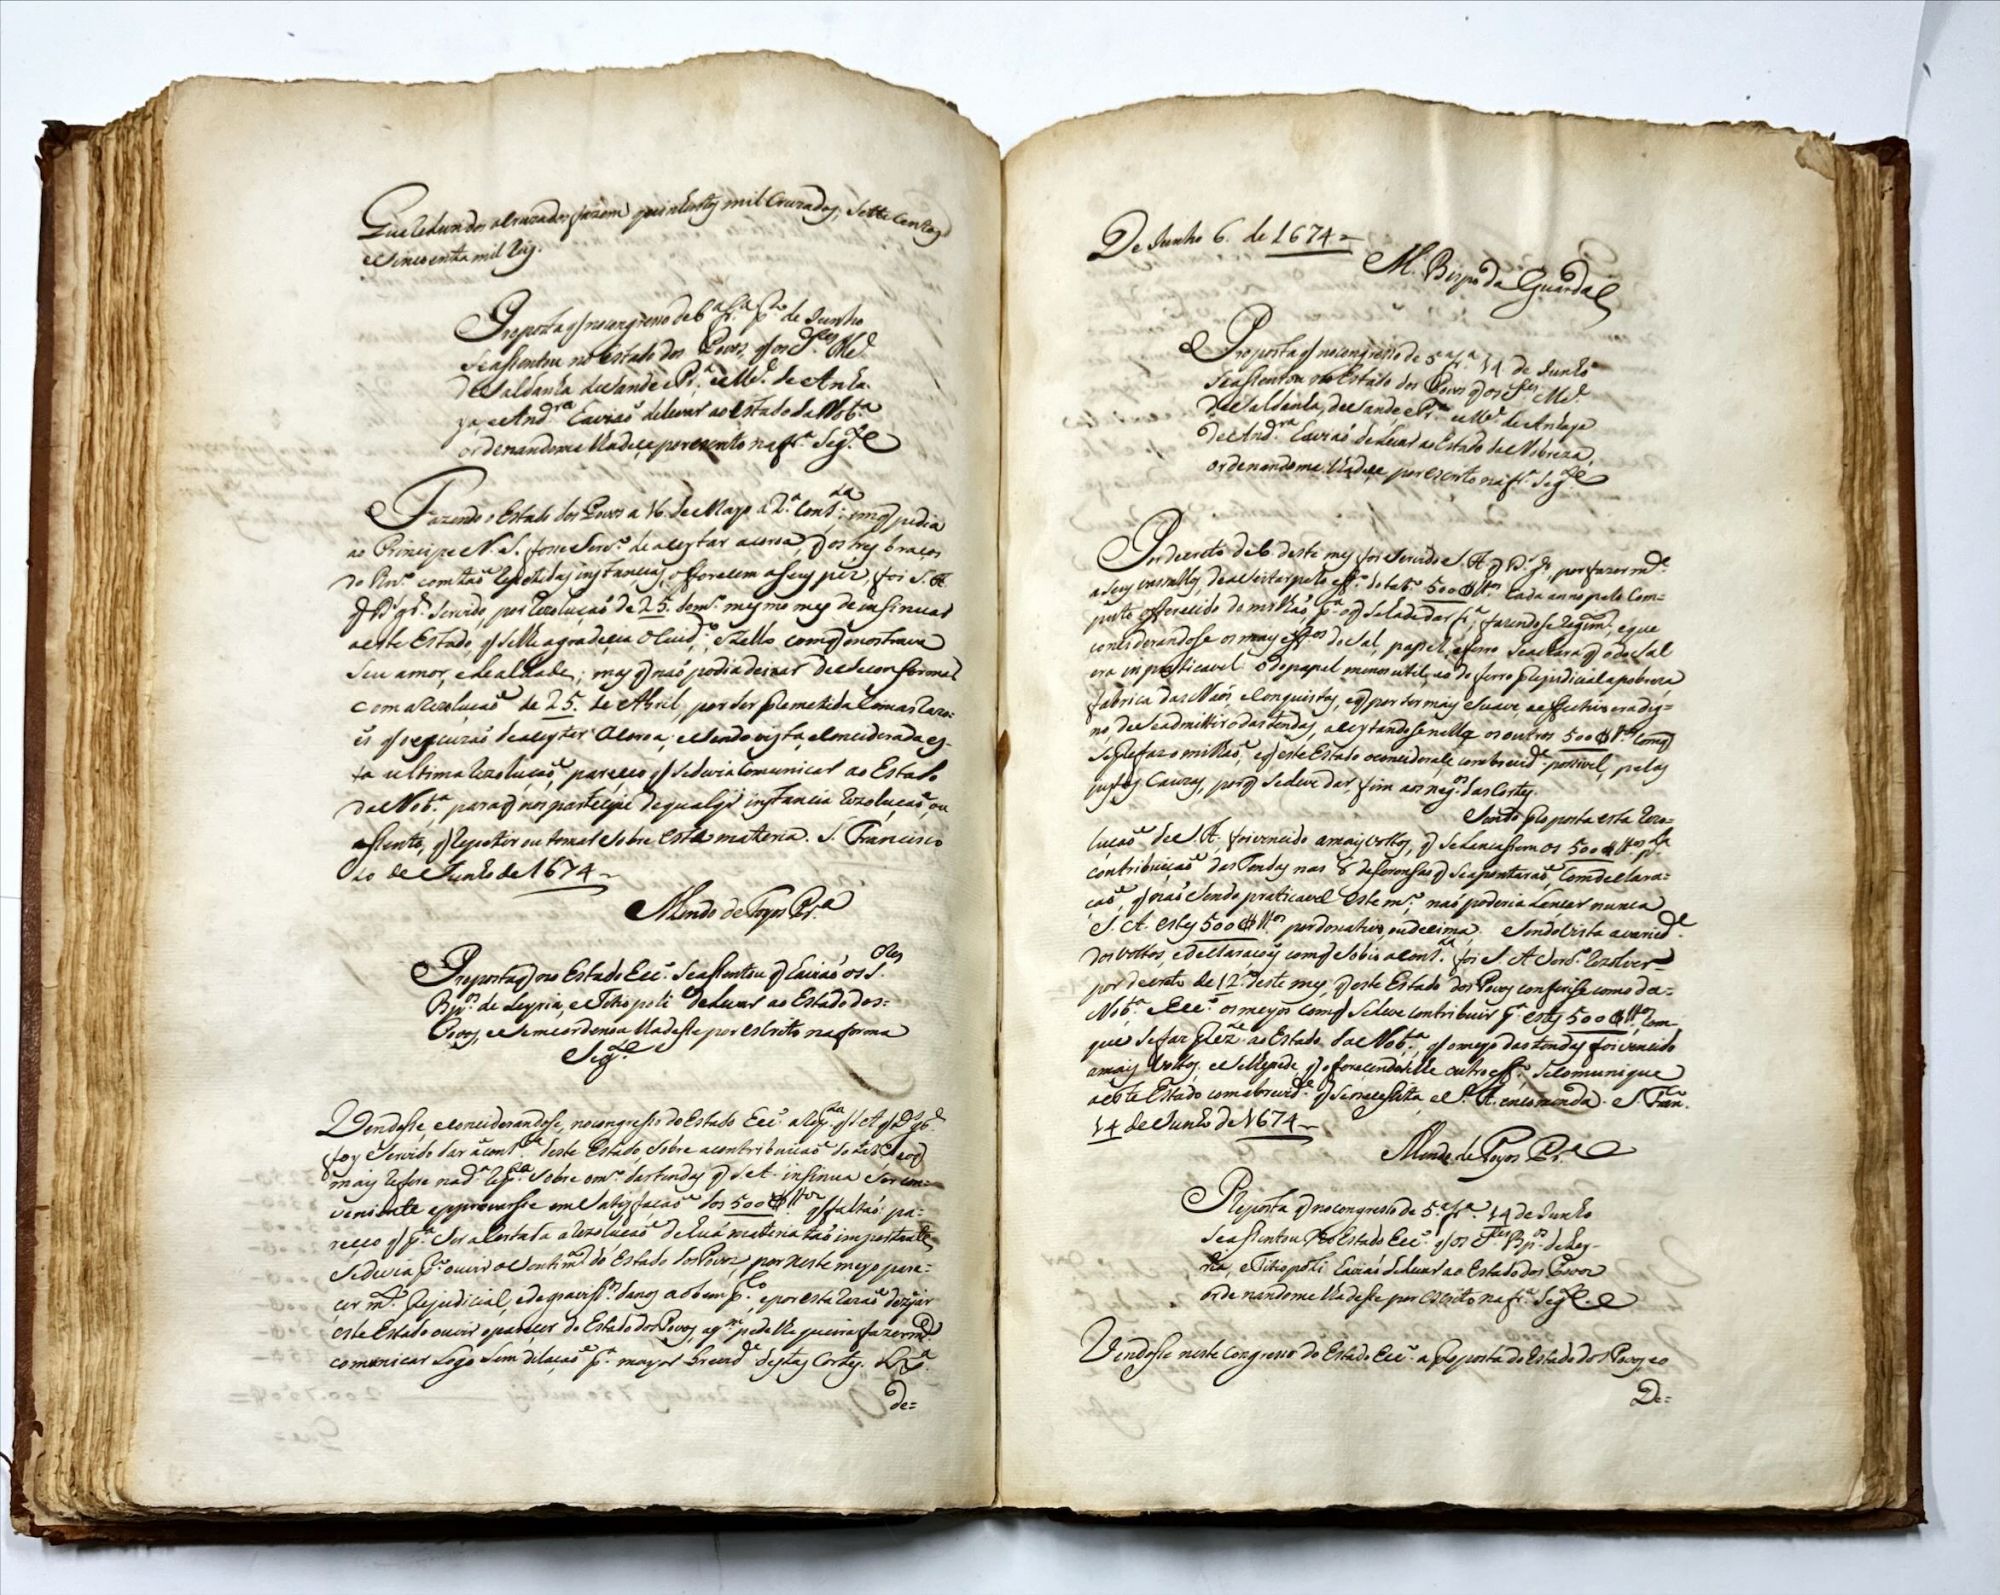 Que Reduzidos a Cruzados fazem quinhentos mil Cruzados, Sette Centos
e Sincoenta mil Reis.
Proposta q̃ no congresso de 6ª frª pro de Junho
Se assentou no Estado dos Povos, q̃ os Sres Mel
de Saldanha de Sande e Prª e Mel de Anta.
ya e Andra havião de levar ao Estado da Nobª
ordenandome lla desse por escrito na frª Segte
Fazendo o Estado dos Povos a 16 de Mayo a 2ª Conta; em q̃ pedia
ao Principe N. S. fosse Servo de aceytar a coroa, q̃ os tres braços
do Rno com tão repetidas instancias, offerecem a Seus pez, foi S. A.
q̃ Ds gde Servido, por Rezolução de 25. do mo mesmo mes de insinuar
a este Estado, q̃ lhe agradecia o cuido, e zello com q̃ mostrava
Seu amor, e Lealdade; mas q̃ não podia deixar de Se conformar
com a Rezolução de 25. de Abril, por ser premeditada Com as razo-
és q̃ o escuzão de aceytar a Coroa; e Sendo vista, e Considerada es-
ta ultima Rezolução, pareceo q̃ Se devia Comunicar ao Estado
da Nobª, para q̃ nos participe de qualqr instancia Rezolução, ou
assento, q̃ repetir ou tomar Sobre esta materia. S. Francisco
10 de Junho de 1674
Mendo de Foyos Prª
Proposta q̃ no Estado Ecco Se assentou q̃ havião os Sres
Bpos de Leyria, e Titiopoli de levar ao Estado dos
Povos, e Se me ordenou lla desse por escrito na forma
Segte
Vendosse e considerandose, no congresso do Estado Ecco a q̃ S. A. q̃ Ds gde
foy Servido dar à conta deste Estado, Sobre a contribuição do tabco e o q̃
mais refere na da Sobre o mo das tendas q̃ S. A. insinua Ser con-
veniente approvarse em Satisfação dos 500 q̃ faltão; pa-
receo q̃ pª Ser acertada a Rezolução de huã materia tão importante
Se devia pro ouvir o Sentimto do Estado dos Povos, por neste meyo pare-
cer mto prejudicial, e de gravissos danos ao bem pco, e por esta razão dezejar
este Estado ouvir o parecer do Estado dos Povos, a qm pede lhe queira fazer mce
comunicar Logo Sem dilação pª mayor brevide destas Cortes. Lxª
de=
De Junho 6. de 1674
M. Bispo da Guarda
Proposta q̃ no congresso de 5ª frª 14 de Junho
Se assentou no Estado dos Povos q̃ os Sres Mel
de Saldanha, de Sande e Prª e Mel de Antaya
de Andra havião de levar ao Estado da Nobreza,
ordenandome lla desse por escrito na frª Segte
Por decreto de 6. deste mes foi Servido S. A. q̃ Ds gde, por fazer mce
a Seus vassallos, de aceitar pelo effo do tabco 500 cada anno pelo Com-
puto offerecido do milhão, pª o q̃ Se lade dar frª, fazendose regimto; e que
considerandose os mays effos do Sal, papel, e ferro Se achara q̃ o do Sal
era impracticavel: o do papel menos util, e o do ferro prejudicial a pobreza
fabrica das Naos, e Conquistas, e q̃ por ser mays Suave, e effectivo era dig-
no, de Se admittir o das tendas, aceytandose nellas os outros 500 com q̃
Se prefaz o milhão, e q̃ este Estado o considerase, com brevide possivel, pelas
justas Cauzas, porq̃ Se deve dar fim aos negos das Cortes.
Sendo proposta esta Rezo-
lução de S. A. foi vencido a mays vottos, q̃ Se Lancassem os 500 pla
contribuição das Tendas nas de q̃ Se apontarão, Com declara-
ção, q̃ não Sendo praticavel este mo, não poderia Lançar nunca
S. A. estes 500 por donativo, ou decima. E Sendo vista a varied.e
dos vottos, e declarações com q̃ Sobio a Conta, foi S. A. Servo rezolver
por decreto de 12. deste mes, q̃ este Estado dos Povos conferisse com o da
Nobª, e Ecco, os meyos com q̃ Se deve contribuir pª estes 500, Com
que Se faz prezte ao Estado da Nobª, q̃ o meyo das tendas foi vencido
a mays vottos, e Se lhe pede, q̃ offerecendoselhe outro effo Se comunique
a este Estado com a brevide q̃ Se necessita, e S. A. encomenda. S. Franco
14 de Junho de 1674
Mendo de Foyos Prª
Proposta q̃ no congresso de 5ª frª 14 de Junho
Se assentou no Estado Ecco q̃ os Sres Bpos de Ley-
ria, e Titiopoli havião de levar ao Estado dos Povos
ordenandome lla desse por escrito na frª Segte
Vendosse neste Congresso do Estado Ecco a proposta do Estado dos Povos, e o
De=